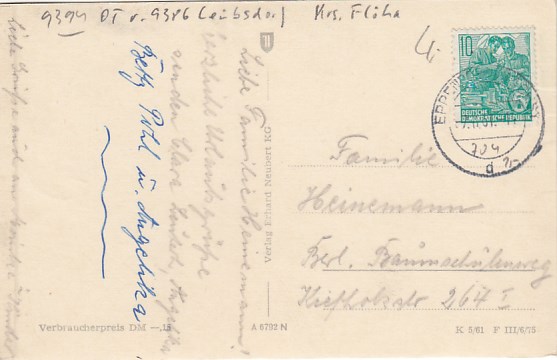 9394 OT v. 9386 Leubsdorf Krs. Flöha
4,-
10
DEUTSCHE
DEMOKRATISCHE REPUBLIK
704
d
Liebe Familie Heinemann!
Herzliche Urlaubsgrüße
senden
Betty Pohl u. Angelika
Liebe Grüße auch an
Verlag Erhard Neubert KG
Familie
Heinemann
Berl. Baumschulenweg
Kiefholzstr 264 I
Verbraucherpreis DM —,15
A 6792 N
K 5/61 F III/6/75